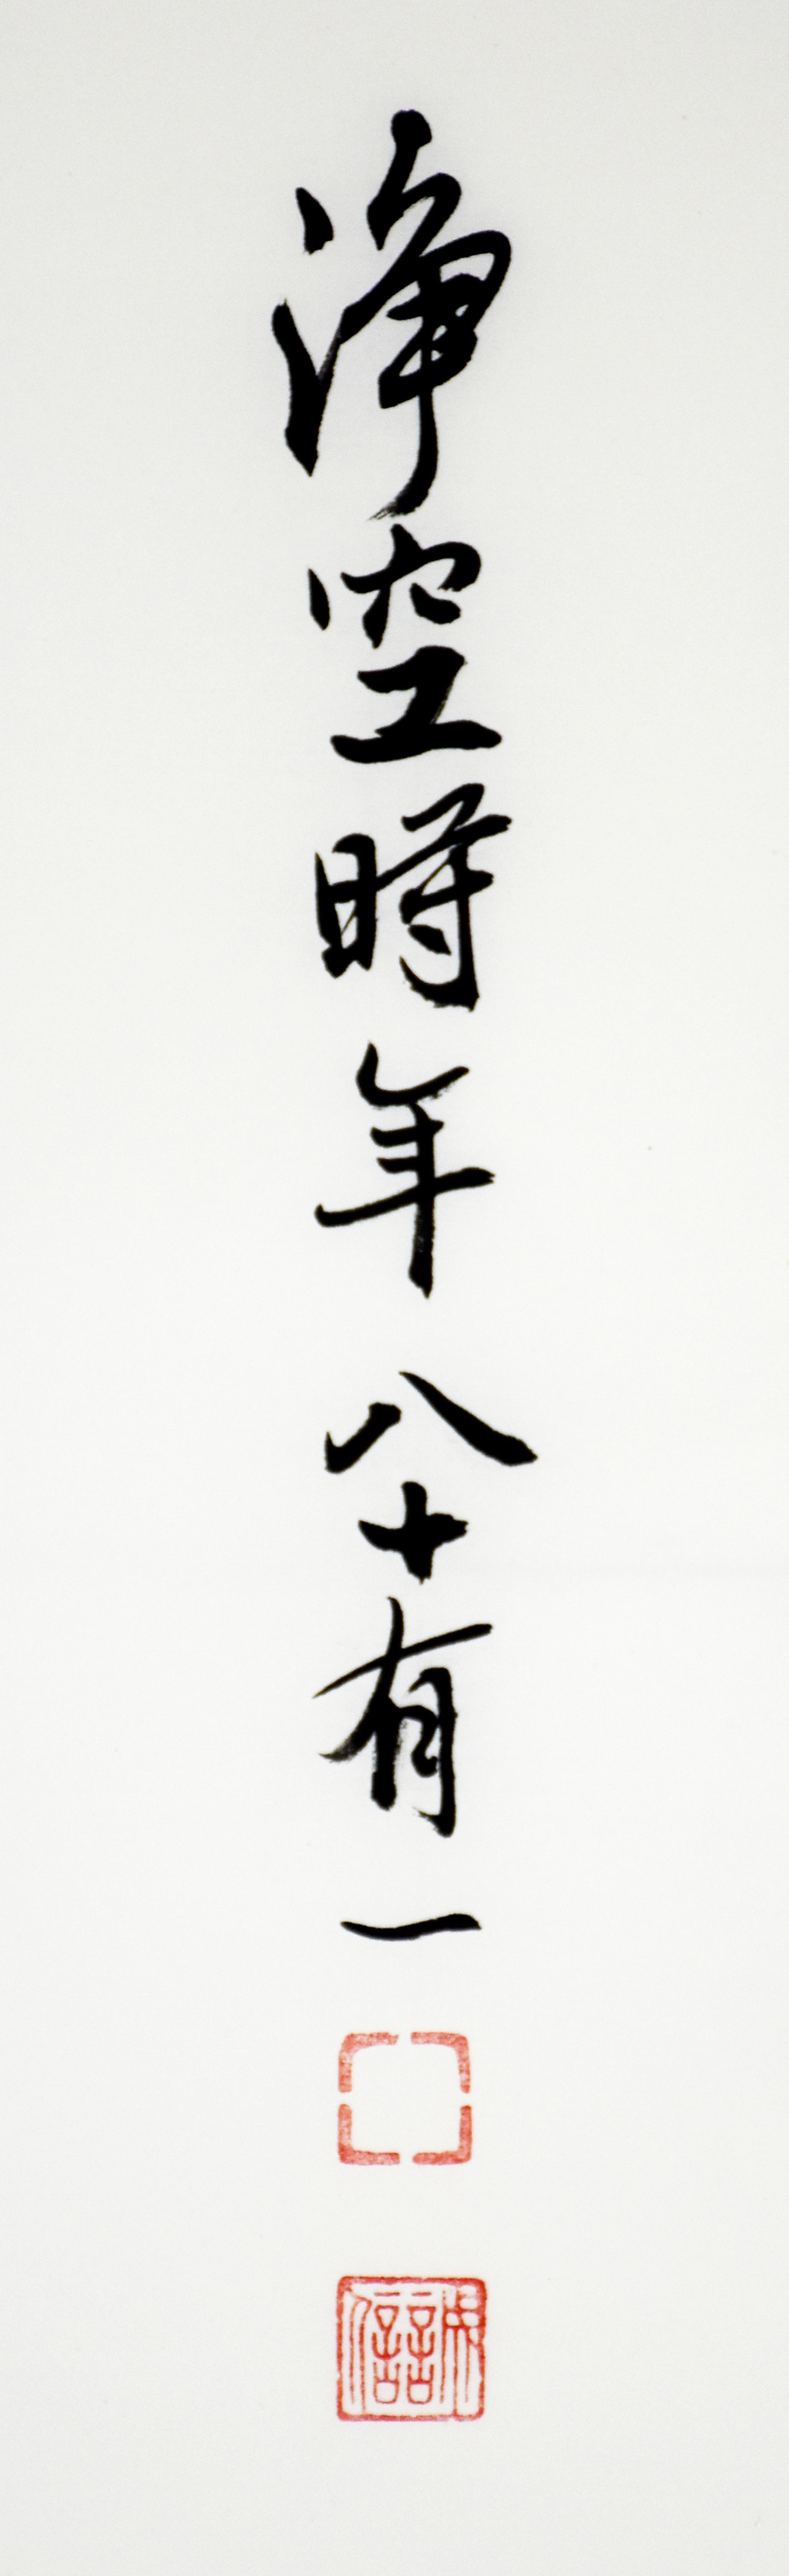 淨空時年八十有一